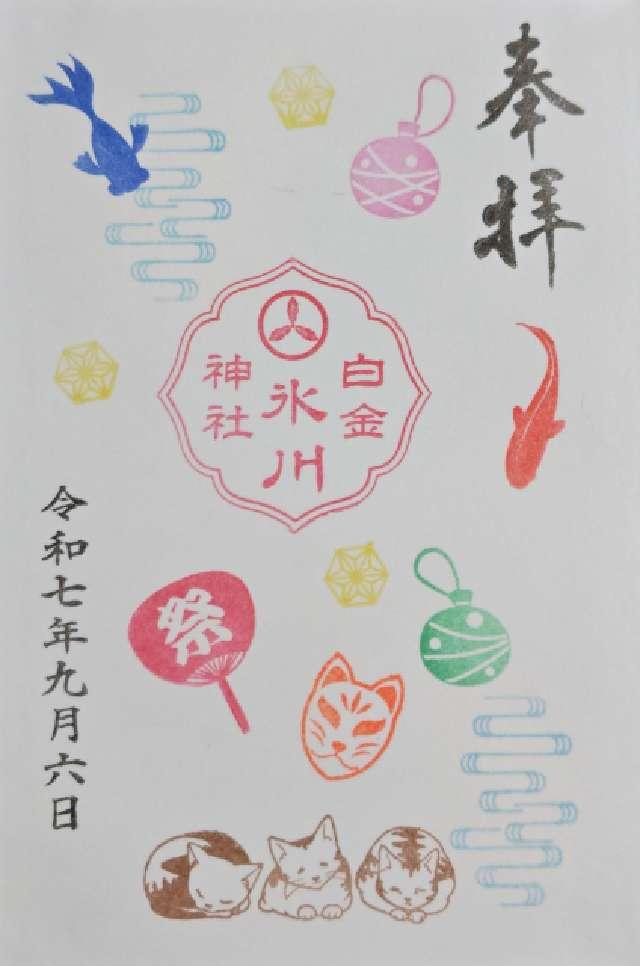 奉拝
白金
氷川
神社
祭
令和七年九月六日